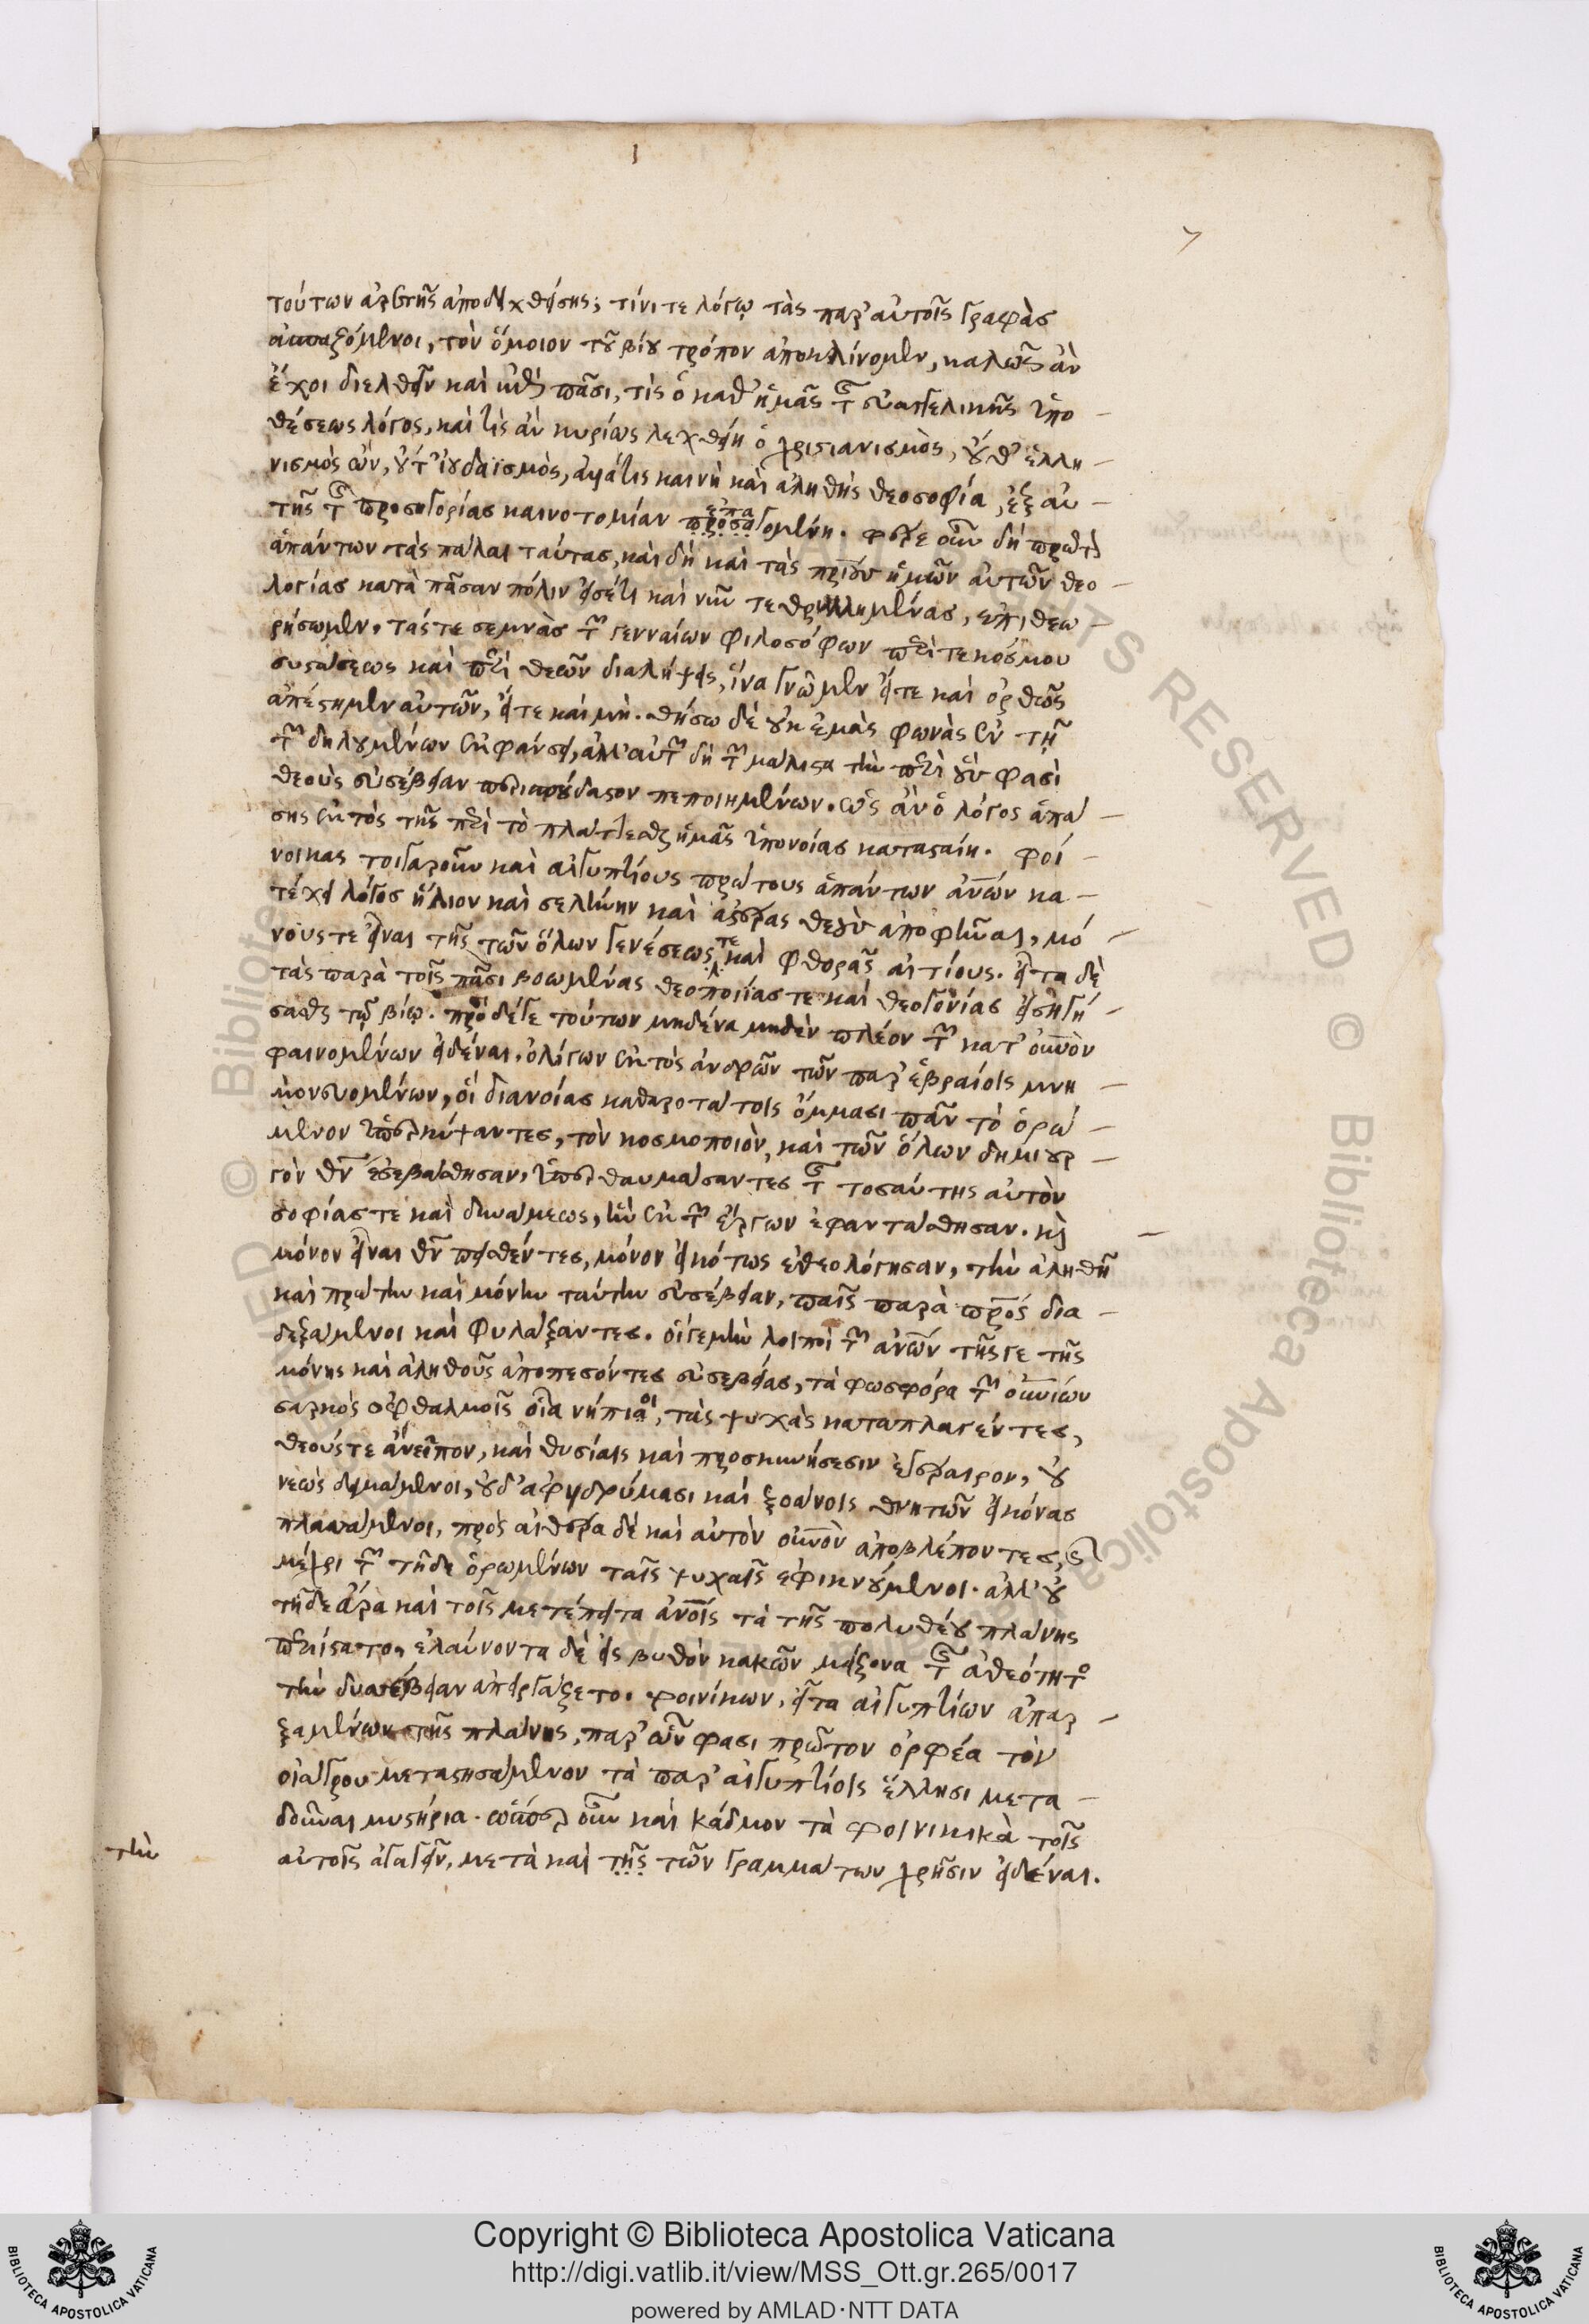 7
τούτων ἀρετῆς ἀποδειχθείσης; τίνι τε λόγῳ τὰς παρ' αὐτοῖς γραφὰς
ἀσπαζόμενοι, τὸν ὅμοιον τοῦ βίου τρόπον ἀποκλίνομεν, καλῶς ἂν
ἔχοι διελθεῖν καὶ
πᾶσι, τίς ὁ καθ' ἡμᾶς τῆς εὐαγγελικῆς ὑπο-
θέσεως λόγος, καὶ τίς ἂν κυρίως λεχθείη ὁ χριστιανισμὸς, οὔθ' ἑλλη-
νισμὸς ὢν, οὔτ' ἰουδαϊσμὸς, ἀλλά τις καινὴ καὶ ἀληθὴς θεοσοφία, ἐξ αὐ-
τῆς τῆς προσηγορίας καινοτομίαν προσαγομένη. φέρε οὖν δὴ πρῶτον
επα
ἁπάντων τὰς πάλαι ταύτας, καὶ δὴ καὶ τὰς πατέρων ἡμῶν αὐτῶν θεο-
λογίας κατὰ πᾶσαν πόλιν εἰσέτι καὶ νῦν τεθρυλλημένας, ἐπιθεω-
ρήσωμεν. τάς τε σεμνὰς τῶν γενναίων φιλοσόφων περί τε κόσμου
συστάσεως καὶ περὶ θεῶν διαλήψεις, ἵνα γνῶμεν εἴτε καὶ ὀρθῶς
ἀπέστημεν αὐτῶν, εἴτε καὶ μή. θήσω δὲ οὐκ ἐμὰς φωνὰς ἐν τῇ
τῶν δηλουμένων ἐκφάνσει, ἀλλ' αὐτῶν δὴ τῶν μάλιστα τὴν περὶ οὓς φασὶ
θεοὺς εὐσέβειαν περισπούδαστον πεποιημένων. ὡς ἂν ὁ λόγος ἁπά-
σης ἐκτὸς τῆς περὶ τὸ πλάττεσθαι ἡμᾶς ὑπονοίας κατασταίη. φοί-
νικας τοιγαροῦν καὶ αἰγυπτίους πρώτους ἁπάντων ἀνῶν κα-
τέχει λόγος ἥλιον καὶ σελήνην καὶ ἀστέρας θεοὺς ἀποφῆναι, μό-
νους τε εἶναι τῆς τῶν ὅλων γενέσεως τε καὶ φθορᾶς αἰτίους. εἶτα δὲ
τὰς παρὰ τοῖς πᾶσι βοωμένας θεοποιίας τε καὶ θεογονίας εἰσηγή-
σασθαι τῷ βίῳ. πρὸ δέ γε τούτων μηδένα μηδὲν πλέον τῶν κατ' οὐνὸν
φαινομένων εἰδέναι. ὀλίγων ἐκτὸς ἀνδρῶν τῶν παρ' ἑβραίοις μνη-
μονευομένων, οἳ διανοίας καθαροτάτοις ὄμμασι πᾶν τὸ ὁρώ-
μενον ὑπερκύψαντες, τὸν κοσμοποιὸν, καὶ τῶν ὅλων δημιουρ-
γὸν θν ἐσεβάσθησαν, ὑπερθαυμάσαντες τῆς τοσαύτης αὐτὸν
σοφίας τε καὶ δυνάμεως, ἣν ἐκ τῶν ἔργων ἐφαντάσθησαν. καὶ
μόνον εἶναι θν πεισθέντες, μόνον εἰκότως ἐθεολόγησαν, τὴν ἀληθῆ
καὶ πρώτην καὶ μόνην ταύτην εὐσέβειαν, παῖς παρὰ προς δια-
δεξάμενοι καὶ φυλάξαντες. οἵ γε μὴν λοιποὶ τῶν ἀνῶν τῆς γε τῆς
μόνης καὶ ἀληθοῦς ἀποπεσόντες εὐσεβείας, τὰ φωσφόρα τῶν οὐνίων
σαρκὸς ὀφθαλμοῖς οἷα νήπιοι, τὰς ψυχὰς καταπλαγέντες,
θεούς τε ἀνεῖπον, καὶ θυσίαις καὶ προσκυνήσεσιν ἐγέραιρον, οὐ
νεὼς δειμάμενοι, οὐδ' ἀφιδρύμασι καὶ ξοάνοις θνητῶν εἰκόνας
πλασάμενοι, πρὸς αἰθέρα δὲ καὶ αὐτὸν οὐνὸν ἀποβλέποντες, καὶ
μέχρι τῶν τῇδε ὁρωμένων ταῖς ψυχαῖς ἐφικνούμενοι. ἀλλ' οὐ
τῇδε ἄρα καὶ τοῖς μετέπειτα ἀνοις τὰ τῆς πολυθέου πλάνης
περιίστατο, ἐλαύνοντα δὲ εἰς βυθὸν κακῶν μείζονα τῆς ἀθεότητος
τὴν δυσσέβειαν ἀπειργάζετο. φοινίκων, εἶτα αἰγυπτίων ἀπαρ-
ξαμένων τῆς πλάνης, παρ' ὧν φασι πρῶτον ὀρφέα τὸν
οἰάγρου μεταστησάμενον τὰ παρ' αἰγυπτίοις ἕλλησι μετα-
δοῦναι μυστήρια. ὥσπερ οὖν καὶ κάδμον τὰ φοινικικὰ τοῖς
αὐτοῖς ἀγαγεῖν, μετὰ καὶ τῆς τῶν γραμμάτων χρῆσιν εἰδέναι.
τὴν
BIBLIOTECA APOSTOLICA VATICANA
Copyright © Biblioteca Apostolica Vaticana
http://digi.vatlib.it/view/MSS_Ott.gr.265/0017
powered by AMLAD·NTT DATA
BIBLIOTECA APOSTOLICA VATICANA